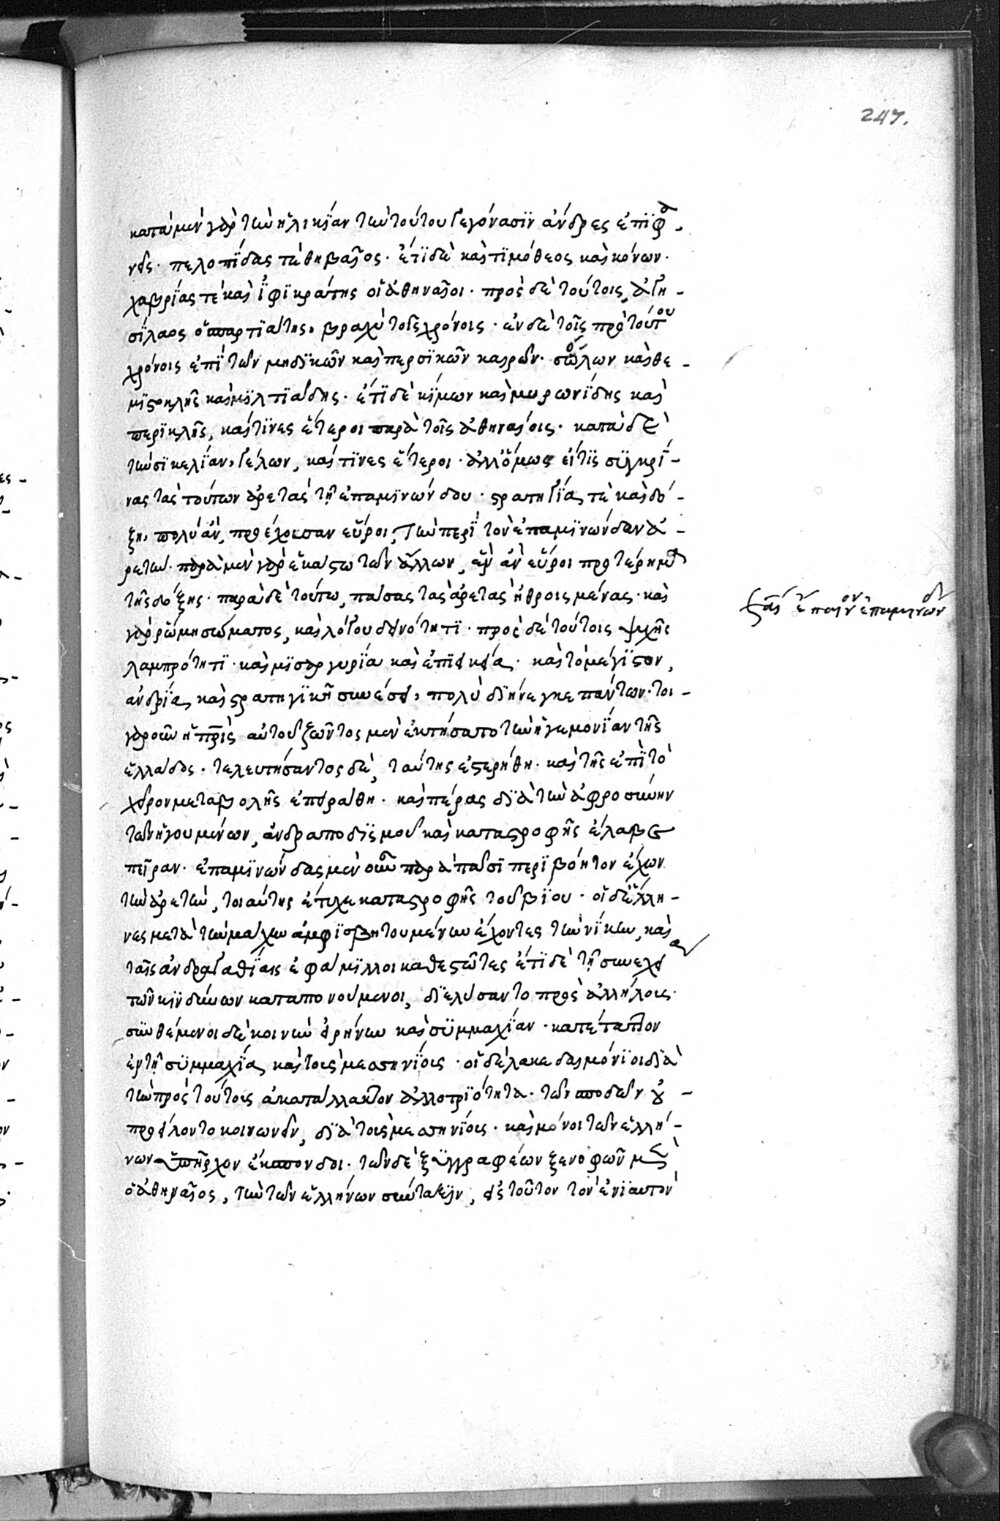 247.
κατὰ μὲν γὰρ τὴν ἡλικίαν τὴν τούτου γεγόνασιν ἄνδρες ἐπιφα-
νεῖς· πελοπίδας τὲ θηβαῖος· ἔτι δὲ καὶ τιμόθεος καὶ κόνων·
χαβρίας τὲ καὶ ἰφικράτης οἱ ἀθηναῖοι· πρὸς δὲ τούτοις, ἀγη-
σίλαος ὁ σπαρτιάτης, βραχὺ τοῖς χρόνοις· ἐν δὲ τοῖς πρὸ τούτου
χρόνοις ἐπὶ τῶν μηδικῶν καὶ περσικῶν καιρῶν· σόλων καὶ θε-
μιστοκλῆς καὶ μιλτιάδης· ἔτι δὲ κίμων καὶ μυρωνίδης καὶ
περικλῆς, καὶ τινες ἕτεροι παρὰ τοῖς ἀθηναίοις· κατὰ δὲ
τὴν σικελίαν, γέλων, καὶ τινες ἕτεροι· ἀλλ' ὅμως εἴ τις συγκρί-
νας τὰς τούτων ἀρετὰς τῇ ἐπαμινώνδου· στρατηγίᾳ τὲ καὶ δό-
ξῃ, πολὺ ἂν προέχουσαν εὕροι, τὴν περὶ τὸν ἐπαμινώνδαν ἀ-
ρετήν· παρὰ μὲν γὰρ ἑκάστω τῶν ἄλλων, ἓν ἂν εὕροι προτέρημα
τῆς δόξης· παρὰ δὲ τούτω, πάσας τὰς ἀρετὰς ἠθροισμένας· καὶ
γὰρ ῥώμη σώματος, καὶ λόγου δεινότητι· πρὸς δὲ τούτοις ψυχῆς
λαμπρότητι· καὶ μισαργυρία καὶ ἐπιεικεία· καὶ τὸ μέγιστον,
ἀνδρία, καὶ στρατηγικῆ συνέσει, πολὺ διήνεγκε πάντων· τοι-
γαροῦν ἡ πατρὶς αὐτοῦ ζῶντος μὲν ἐκτήσατο τὴν ἡγεμονίαν τῆς
ἑλλάδος· τελευτήσαντος δὲ, ταύτης ἐστερήθη· καὶ τῆς ἐπὶ τὸ
χεῖρον μεταβολῆς ἐπειράθη· καὶ πέρας διὰ τὴν ἀφροσύνην
τῶν ἡγουμένων, ἀνδραποδισμοῦ καὶ καταστροφῆς ἔλαβε
πεῖραν· ἐπαμινώνδας μὲν οὖν παρὰ πᾶσι περιβόητον ἔχων
τὴν ἀρετὴν, τοιαύτης ἔτυχε καταστροφῆς τοῦ βίου· οἱ δὲ ἕλλη-
νες μετὰ τὴν μάχην ἀμφισβητουμένην ἔχοντες τὴν νίκην, καὶ
ταῖς ἀνδραγαθίαις ἐφάμιλλοι καθεστῶτες ἔτι δὲ τῇ συνεχεία
τῶν κινδύνων καταπονούμενοι, διελύσαντο πρὸς ἀλλήλους·
συνθέμενοι δὲ κοινὴν εἰρήνην καὶ συμμαχίαν· κατέταττον
ἐν τῇ συμμαχία καὶ τοὺς μεσσηνίους· οἱ δὲ λακεδαιμόνιοι διὰ
τὴν πρὸς τούτους ἀκατάλλακτον ἀλλοτριότητα· τῶν σπονδῶν οὐ
προείλοντο κοινωνεῖν, διὰ τοὺς μεσσηνίους· καὶ μόνοι τῶν ἑλλή-
νων ὑπῆρχον ἔκσπονδοι· τῶν δὲ ξυγγραφέων ξενοφῶν μὲν
ὁ ἀθηναῖος, τὴν τῶν ἑλλήνων σύνταξιν, εἰς τοῦτον τὸν ἐνιαυτὸν